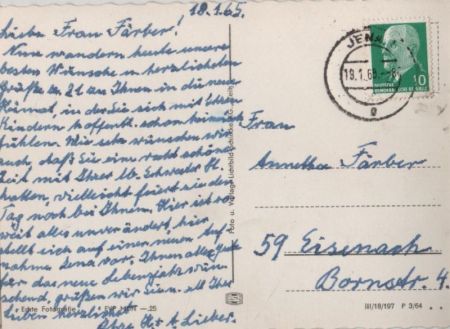 19.1.65.
Liebe Frau Färber!
Nun wandern heute unsere
besten Wünsche u. herzlichsten
Grüße zu Ihnen in die neue
Heimat, in der Sie sich mit Ihren
Kindern hoffentl. schon heimisch
fühlen. Wir wünschen
auch, daß Sie eine recht schöne
Zeit mit Ihrer lb. Schwester
hatten, vielleicht feiert sie den
Tag noch bei Ihnen. Hier ist so
weit alles unverändert, hier
stellt sich auf einen neuen
Jena vor. Ihnen alles Gute
für das neue Lebensjahr wün
schend, grüßen wir Sie u. all Ihre
Lieben herzlichst
Ihre A. Lieber.
Echte Fotografie
25
Foto u. Verlag
JENA
19.1.65
10
DEUTSCHE
DEMOKRATISCHE REPUBLIK
Frau
Annetha Färber
59 Eisenach
Bornstr. 4.
III/18/197 P 3/64